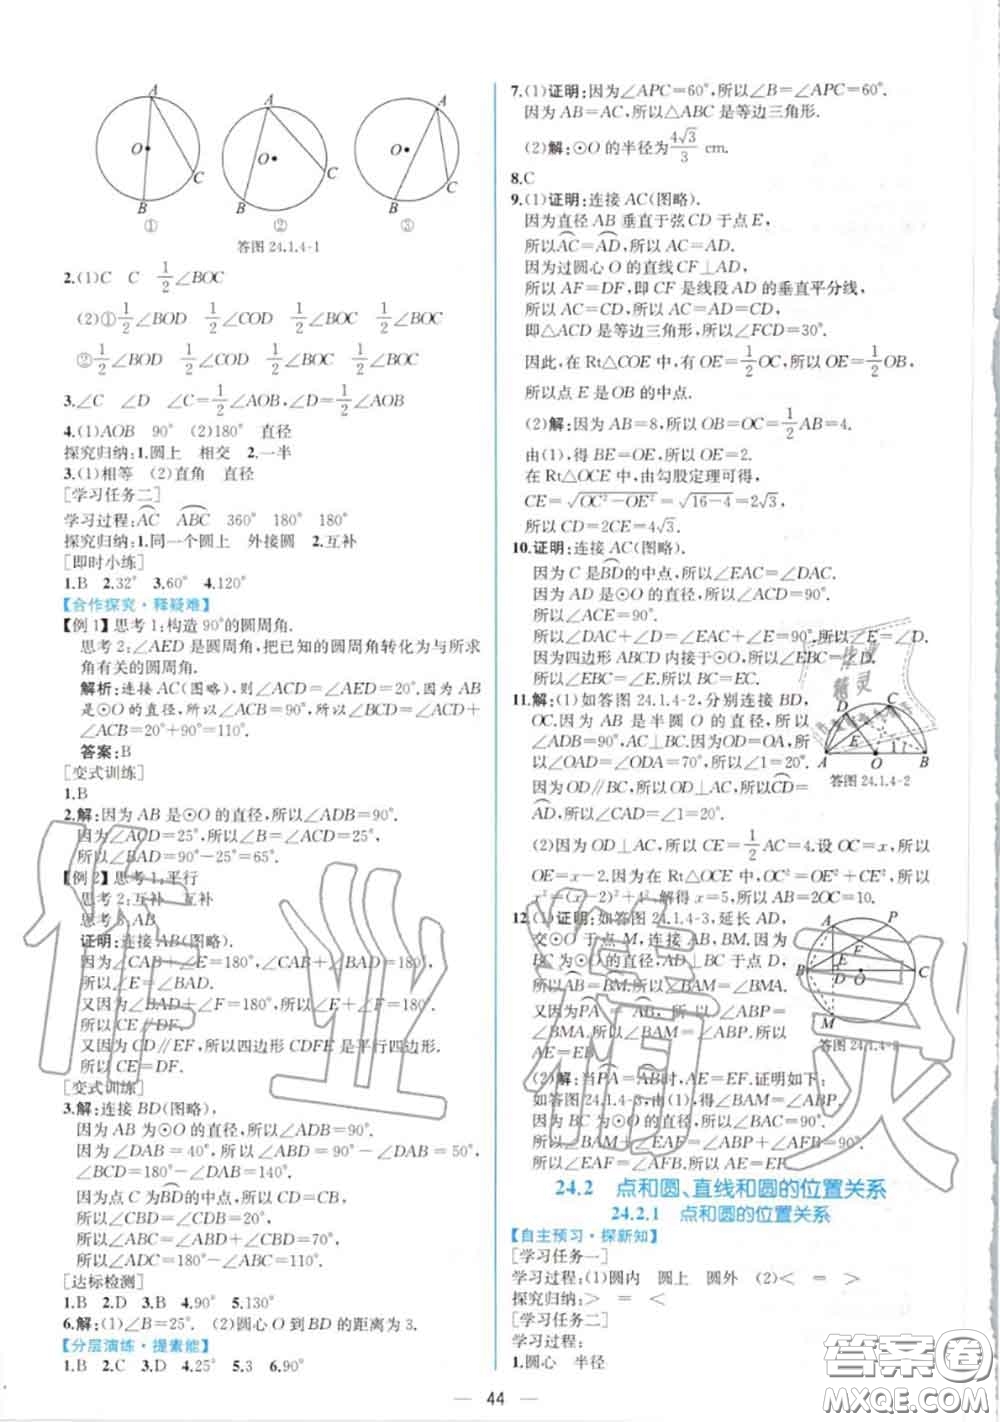 A
A
A
O
O
O
C
C
C
B
B
B
① ② ③
答图 24.1.4-1
2.(1)C C 1/2∠BOC
(2)①1/2∠BOD 1/2∠COD 1/2∠BOC 1/2∠BOC
②1/2∠BOD 1/2∠COD 1/2∠BOC 1/2∠BOC
3.∠C ∠D ∠C=1/2∠AOB,∠D=1/2∠AOB
4.(1)AOB 90° (2)180° 直径
探究归纳:1.圆上 相交 2.一半
3.(1)相等 (2)直角 直径
[学习任务二]
学习过程:AC ABC 360° 180° 180°
探究归纳:1.同一个圆上 外接圆 2.互补
[即时小练]
1.B 2.32° 3.60° 4.120°
【合作探究·释疑难】
【例 1】思考 1:构造 90°的圆周角.
思考 2:∠AED 是圆周角,把已知的圆周角转化为与所求
角有关的圆周角.
解析:连接 AC(图略),则∠ACD=∠AED=20°.因为 AB
是⊙O 的直径,所以∠ACB=90°,所以∠BCD=∠ACD+
∠ACB=20°+90°=110°.
答案:B
[变式训练]
1.B
2.解:因为 AB 是⊙O 的直径,所以∠ADB=90°.
因为∠ACD=25°,所以∠B=∠ACD=25°.
所以∠BAD=90°-25°=65°.
【例 2】思考 1:平行
思考 2:互补 互补
思考 3:AB
证明:连接 AB(图略).
因为∠CAB+∠E=180°,∠CAB+∠BAD=180°,
所以∠E=∠BAD.
又因为∠BAD+∠F=180°,所以∠E+∠F=180°.
所以 CE∥DF.
又因为 CD∥EF,所以四边形 CDFE 是平行四边形.
所以 CE=DF.
[变式训练]
3.解:连接 BD(图略),
因为 AB 为⊙O 的直径,所以∠ADB=90°.
因为∠DAB=40°,所以∠ABD=90°-∠DAB=50°.
∠BCD=180°-∠DAB=140°.
因为点 C 为BD的中点,所以 CD=CB.
所以∠CBD=∠CDB=20°.
所以∠ABC=∠ABD+∠CBD=70°.
所以∠ADC=180°-∠ABC=110°.
[达标检测]
1.B 2.D 3.B 4.90° 5.130°
6.解:(1)∠B=25°. (2)圆心 O 到BD 的距离为 3.
【分层演练·提素能】
1.B 2.C 3.D 4.25° 5.3 6.90°
7.(1)证明:因为∠APC=60°,所以∠B=∠APC=60°.
因为 AB=AC,所以△ABC 是等边三角形.
(2)解:⊙O 的半径为4√3/3 cm.
8.C
9.(1)证明:连接 AC(图略).
因为直径 AB 垂直于弦 CD 于点 E,
所以AC=AD,所以 AC=AD.
因为过圆心 O 的直线 CF⊥AD,
所以 AF=DF,即 CF 是线段 AD 的垂直平分线,
所以 AC=CD,所以 AC=AD=CD.
即△ACD 是等边三角形,所以∠FCD=30°.
因此,在 Rt△COE 中,有 OE=1/2OC,所以 OE=1/2OB,
所以点 E 是 OB 的中点.
(2)解:因为 AB=8,所以 OB=OC=1/2AB=4.
由(1),得 BE=OE,所以 OE=2.
在 Rt△OCE 中,由勾股定理可得,
CE=√OC²-OE²=√16-4=2√3.
所以 CD=2CE=4√3.
10.证明:连接 AC(图略).
因为 C 是BD的中点,所以∠EAC=∠DAC.
因为 AD 是⊙O 的直径,所以∠ACD=90°.
所以∠ACE=90°.
所以∠DAC+∠D=∠EAC+∠E=90°,所以∠E=∠D.
因为四边形 ABCD 内接于⊙O,所以∠EBC=∠D.
所以∠EBC=∠E,所以 BC=EC.
11.解:(1)如答图 24.1.4-2,分别连接 BD,
OC.因为 AB 是半圆 O 的直径,所以
∠ADB=90°,AC⊥BC.因为OD=OA,所
以∠OAD=∠ODA=70°,所以∠1=20°.
因为 OD∥BC,所以 OD⊥AC,所以CD=
AD,所以∠2=∠1=20°.
D
C
E
A
O
B
答图 24.1.4-2
(2)因为 OD⊥AC,所以 CE=1/2AC=4.设 OC=x,所以
OE=x-2.因为在 Rt△OCE 中,OC²=OE²+CE²,所以
x²=(x-2)²+4².解得 x=5,所以 AB=2OC=10.
12.(1)证明:如答图 24.1.4-3,延长 AD,
交⊙O 于点 M,连接 AB,BM.因为
BC 为⊙O的直径,AD⊥BC 于点 D,
所以AB=BM.所以∠BAM=∠BMA.
又因为PA=AB,所以∠ABP=
∠BMA.所以∠BAM=∠ABP.所以
AE=EB.
A
P
E
F
B
D
O
C
M
答图 24.1.4-3
(2)解:当PA=AB时,AE=EF.证明如下:
如答图 24.1.4-3,由(1),得∠ABP=∠BAM.
因为 BC 为⊙O 的直径,所以∠BAC=90°.
所以∠BAM+∠EAF=∠ABP+∠AFB=90°.
所以∠EAF=∠AFB.所以 AE=EF.
24.2 点和圆、直线和圆的位置关系
24.2.1 点和圆的位置关系
【自主预习·探新知】
[学习任务一]
学习过程:(1)圆内 圆上 圆外 (2)< = >
探究归纳:> = <
[学习任务二]
学习过程:
1.圆心 半径
44
作业精灵
答案圈
MXQE.COM